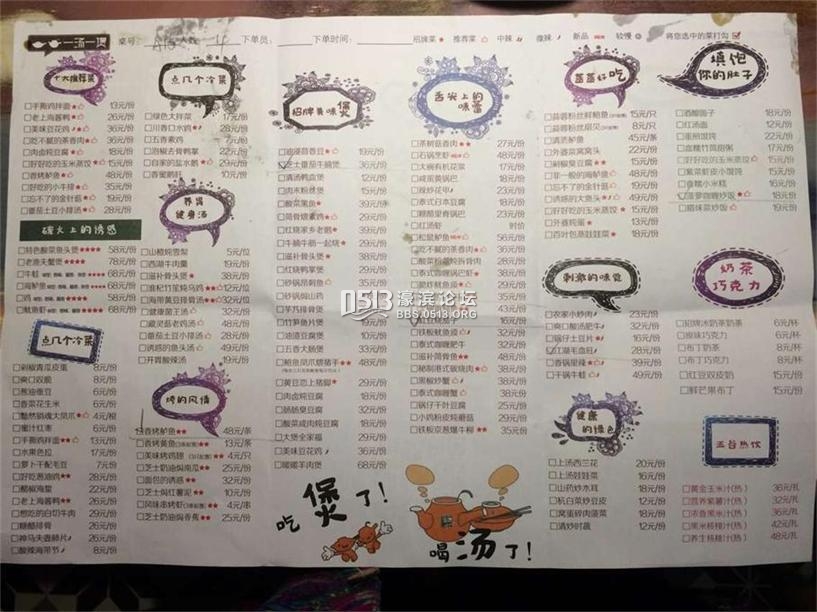 一汤一煲 桌号: A15 人数: 4 下单员: 下单时间: 招牌菜 推荐菜 中辣 微辣 新品 较慢 将您选中的菜打勾
十大推荐菜
手撕鸡拌面 13元/份
老上海酱鸭 26元/份
美味豆花鸡 36元/份
吃不腻的茶香肉 36元/份
肉卤炖豆腐 18元/份
好好吃的玉米蒸饺 15元/份
香烤鲈鱼 48元/份
好吃的小牛排 35元/份
忘不了的金针菇 18元/份
番茄土豆小排汤 28元/份
碳火上的诱惑
特色酸菜鱼头煲 58元/份
老渔夫蟹煲 78元/份
牛蛙 68元/份
海鲈鱼 68元/份
鸡 58元/份
鱿鱼虾 68元/份
点几个冷菜
剁椒青瓜皮蛋 8元/份
爽口双脆 8元/份
葱油蚕豆 6元/份
香菜花生米 6元/份
黯然销魂大凤爪 4元/袍
蜜汁红枣 6元/份
手撕鸡拌面 13元/份
水果色拉 17元/份
萝卜干配毛豆 7元/份
好吃葱油鸡 28元/份
醋椒海蜇 22元/份
老上海酱鸭 26元/份
想吃的白切牛肉 29元/份
糖醋排骨 26元/份
神马夫妻肺片 26元/份
酸辣海带节 8元/份
点几个冷菜
绿色大拌菜 17元/份
川香口水鸡 28元/份
五香素鸡 7元/份
泡椒去骨鸭掌 22元/份
自家的盐水鹅 29元/份
香蜜鹅肝 10元/份
养胃健身汤
山楂炖雪梨 5元/位
西湖牛肉羹 19元/份
滋补骨头煲 38元/份
淮杞竹笙炖乌鸡 12元/位
海带黄豆排骨汤 32元/位
健康菌王汤 32元/份
藏灵菇老鸡汤 48元/份
番茄土豆小排汤 28元/份
诱惑的鱼头汤 49元/份
开胃酸辣汤 19元/份
烤的风情
香烤鲈鱼 48元/条
香烤黄鱼 23元/条
美味烤鸡翅 4元/只
芝士奶油焗南瓜 25元/份
面包的诱惑 32元/份
芝士焗红薯泥 10元/份
风味串烤虾 4元/串
芝士奶油焗香蕉 25元/份
招牌美味煲
油浸茴香豆 19元/份
芝士番茄牛腩煲 36元/份
清汤鸭血煲 12元/份
肉末粉丝煲 15元/份
酸菜黑鱼 39元/条
筒骨煨素鸡 29元/份
红烧家乡老鹅 39元/份
牛腩牛筋一起烧 49元/份
滋补骨头煲 38元/份
红烧鸭掌煲 29元/份
砂锅昂刺鱼 35元/份
砂锅焗山药 35元/份
芋艿排骨煲 35元/份
竹笋鱼片煲 19元/份
油浸豆腐 10元/份
五香大肠煲 33元/份
鲍鱼凤爪燃猪手 48元/份
黄豆恋上猪脚 29元/份
肉卤炖豆腐 18元/份
肠肠臭豆腐 32元/份
酸菜咸肉炖豆腐 28元/份
大煲全家福 29元/份
美味豆花鸡 36元/份
暖暖羊肉煲 68元/份
舌尖上的味蕾
茶树菇香肉 27元/份
石锅烹虾 48元/份
大碗有机花菜 17元/份
咸蛋黄锅巴 18元/份
辣炒花甲 23元/份
日本豆腐煲 18元/份
糖醋里脊锅巴 38元/份
红汤虾 时价
松鼠鲈鱼 56元/份
吃不腻的茶香肉 36元/份
酸菜粉蒸炒拆骨肉 26元/份
泰式咖喱锅巴虾 38元/份
酸竹鱿鱼须 26元/份
泰式咖喱鸡 32元/份
红豆辣子牛 38元/份
铁板鱿鱼煲 32元/份
泰式咖喱肥牛 32元/份
滋补筒骨煲 44元/份
秘制港式碳烧肉 36元/份
黑椒炒蟹 36元/份
泰式咖喱蟹 38元/份
锅仔千叶豆腐 25元/份
小鸡粉皮炖蘑菇 29元/份
铁板京葱爆牛柳 35元/份
蒸蒸好吃
蒜蓉粉丝鲜鲍鱼 15元/只
蒜蓉粉丝扇贝 8元/只
清蒸鲈鱼 45元/条
外婆菜窝窝头 22元/份
剁椒臭豆腐 20元/份
非一般的海鲈鱼 48元/份
忘不了的金针菇 18元/份
诱惑的大鱼头 49元/份
好好吃的玉米蒸饺 15元/份
外婆炖蛋 13元/份
百叶包蒸娃娃菜 18元/份
刺激的味觉
农家小炒肉 23元/份
爽口酸汤肥牛 32元/份
锅仔土豆片 16元/份
江湖毛血旺 38元/份
香锅里辣 39元/份
干锅牛蛙 49元/份
健康的绿色
上汤西兰花 20元/份
上汤娃娃菜 16元/份
山药炒木耳 18元/份
杭白菜炒豆皮 12元/份
窝蛋碎肉菠菜 18元/份
清炒时蔬 12元/份
填饱你的肚子
酒酿圆子 18元/份
红汤面 12元/份
蛋煎饭馍 22元/份
酱糯竹筒甜粥 17元/份
好好吃的玉米蒸饺 15元/份
紫菜虾皮小馄饨 15元/份
香糯小米糕 16元/份
菠萝咖喱炒饭 18元/份
腊味菜炒饭 19元/份
奶茶巧克力
招牌冰奶茶奶茶 6元/杯
原味巧克力 6元/杯
布丁奶茶 8元/杯
布丁巧克力 8元/杯
红豆双皮奶 15元/份
鲜芒果布丁 15元/份
五谷热饮
黄金玉米汁(热) 36元/扎
营养紫薯汁(热) 32元/扎
浓香黑米汁(热) 36元/扎
黑米核桃汁(热) 42元/扎
养生核桃汁(热) 48元/扎
吃煲了!
喝汤了!
0513 濠滨论坛
BBS.0513.ORG